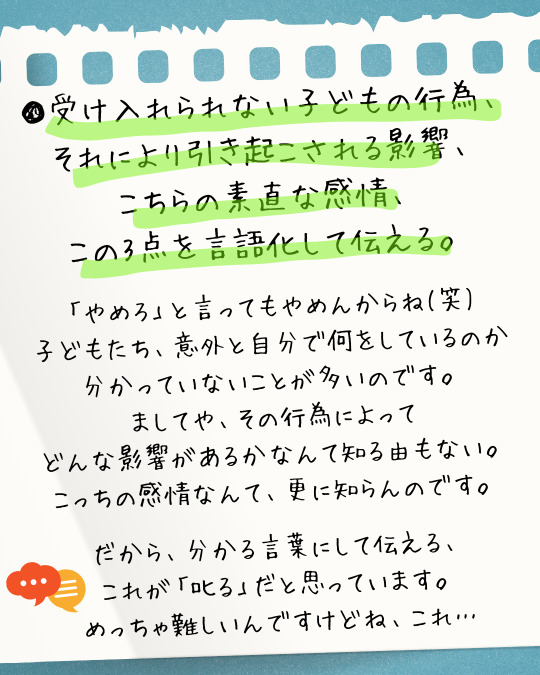 ④受け入れられない子どもの行為、
それにより引き起こされる影響、
こちらの素直な感情、
この3点を言語化して伝える。
「やめろ」と言ってもやめんからね(笑)
子どもたち、意外と自分で何をしているのか
分かっていないことが多いのです。
ましてや、その行為によって
どんな影響があるかなんて知る由もない。
こっちの感情なんて、更に知らんのです。
だから、分かる言葉にして伝える、
これが「叱る」だと思っています。
めっちゃ難しいんですけどね、これ…